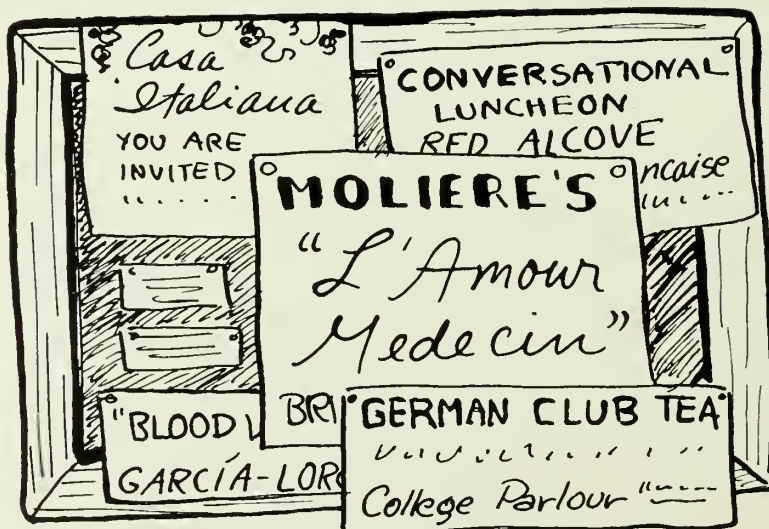 Casa
Italiana
YOU ARE
INVITED
CONVERSATIONAL
LUNCHEON
RED ALCOVE
ncaise
MOLIERE'S
"L'Amour
Medecin"
BRI
"BLOOD
GARCÍA-LOR
GERMAN CLUB TEA
College Parlour